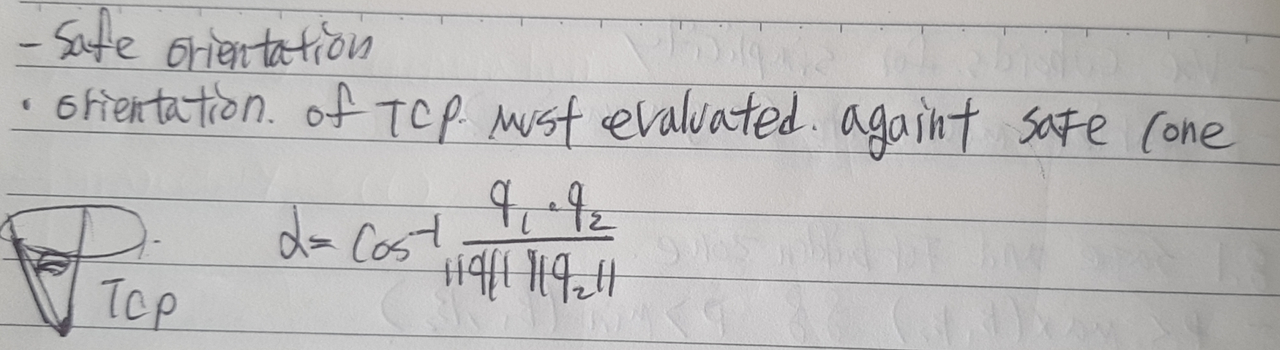 - Safe orientation
• orientation. of TCP. must evaluated. againt safe cone
d = cos⁻¹ q₁ · q₂ / ||q₁|| ||q₂||
TCP